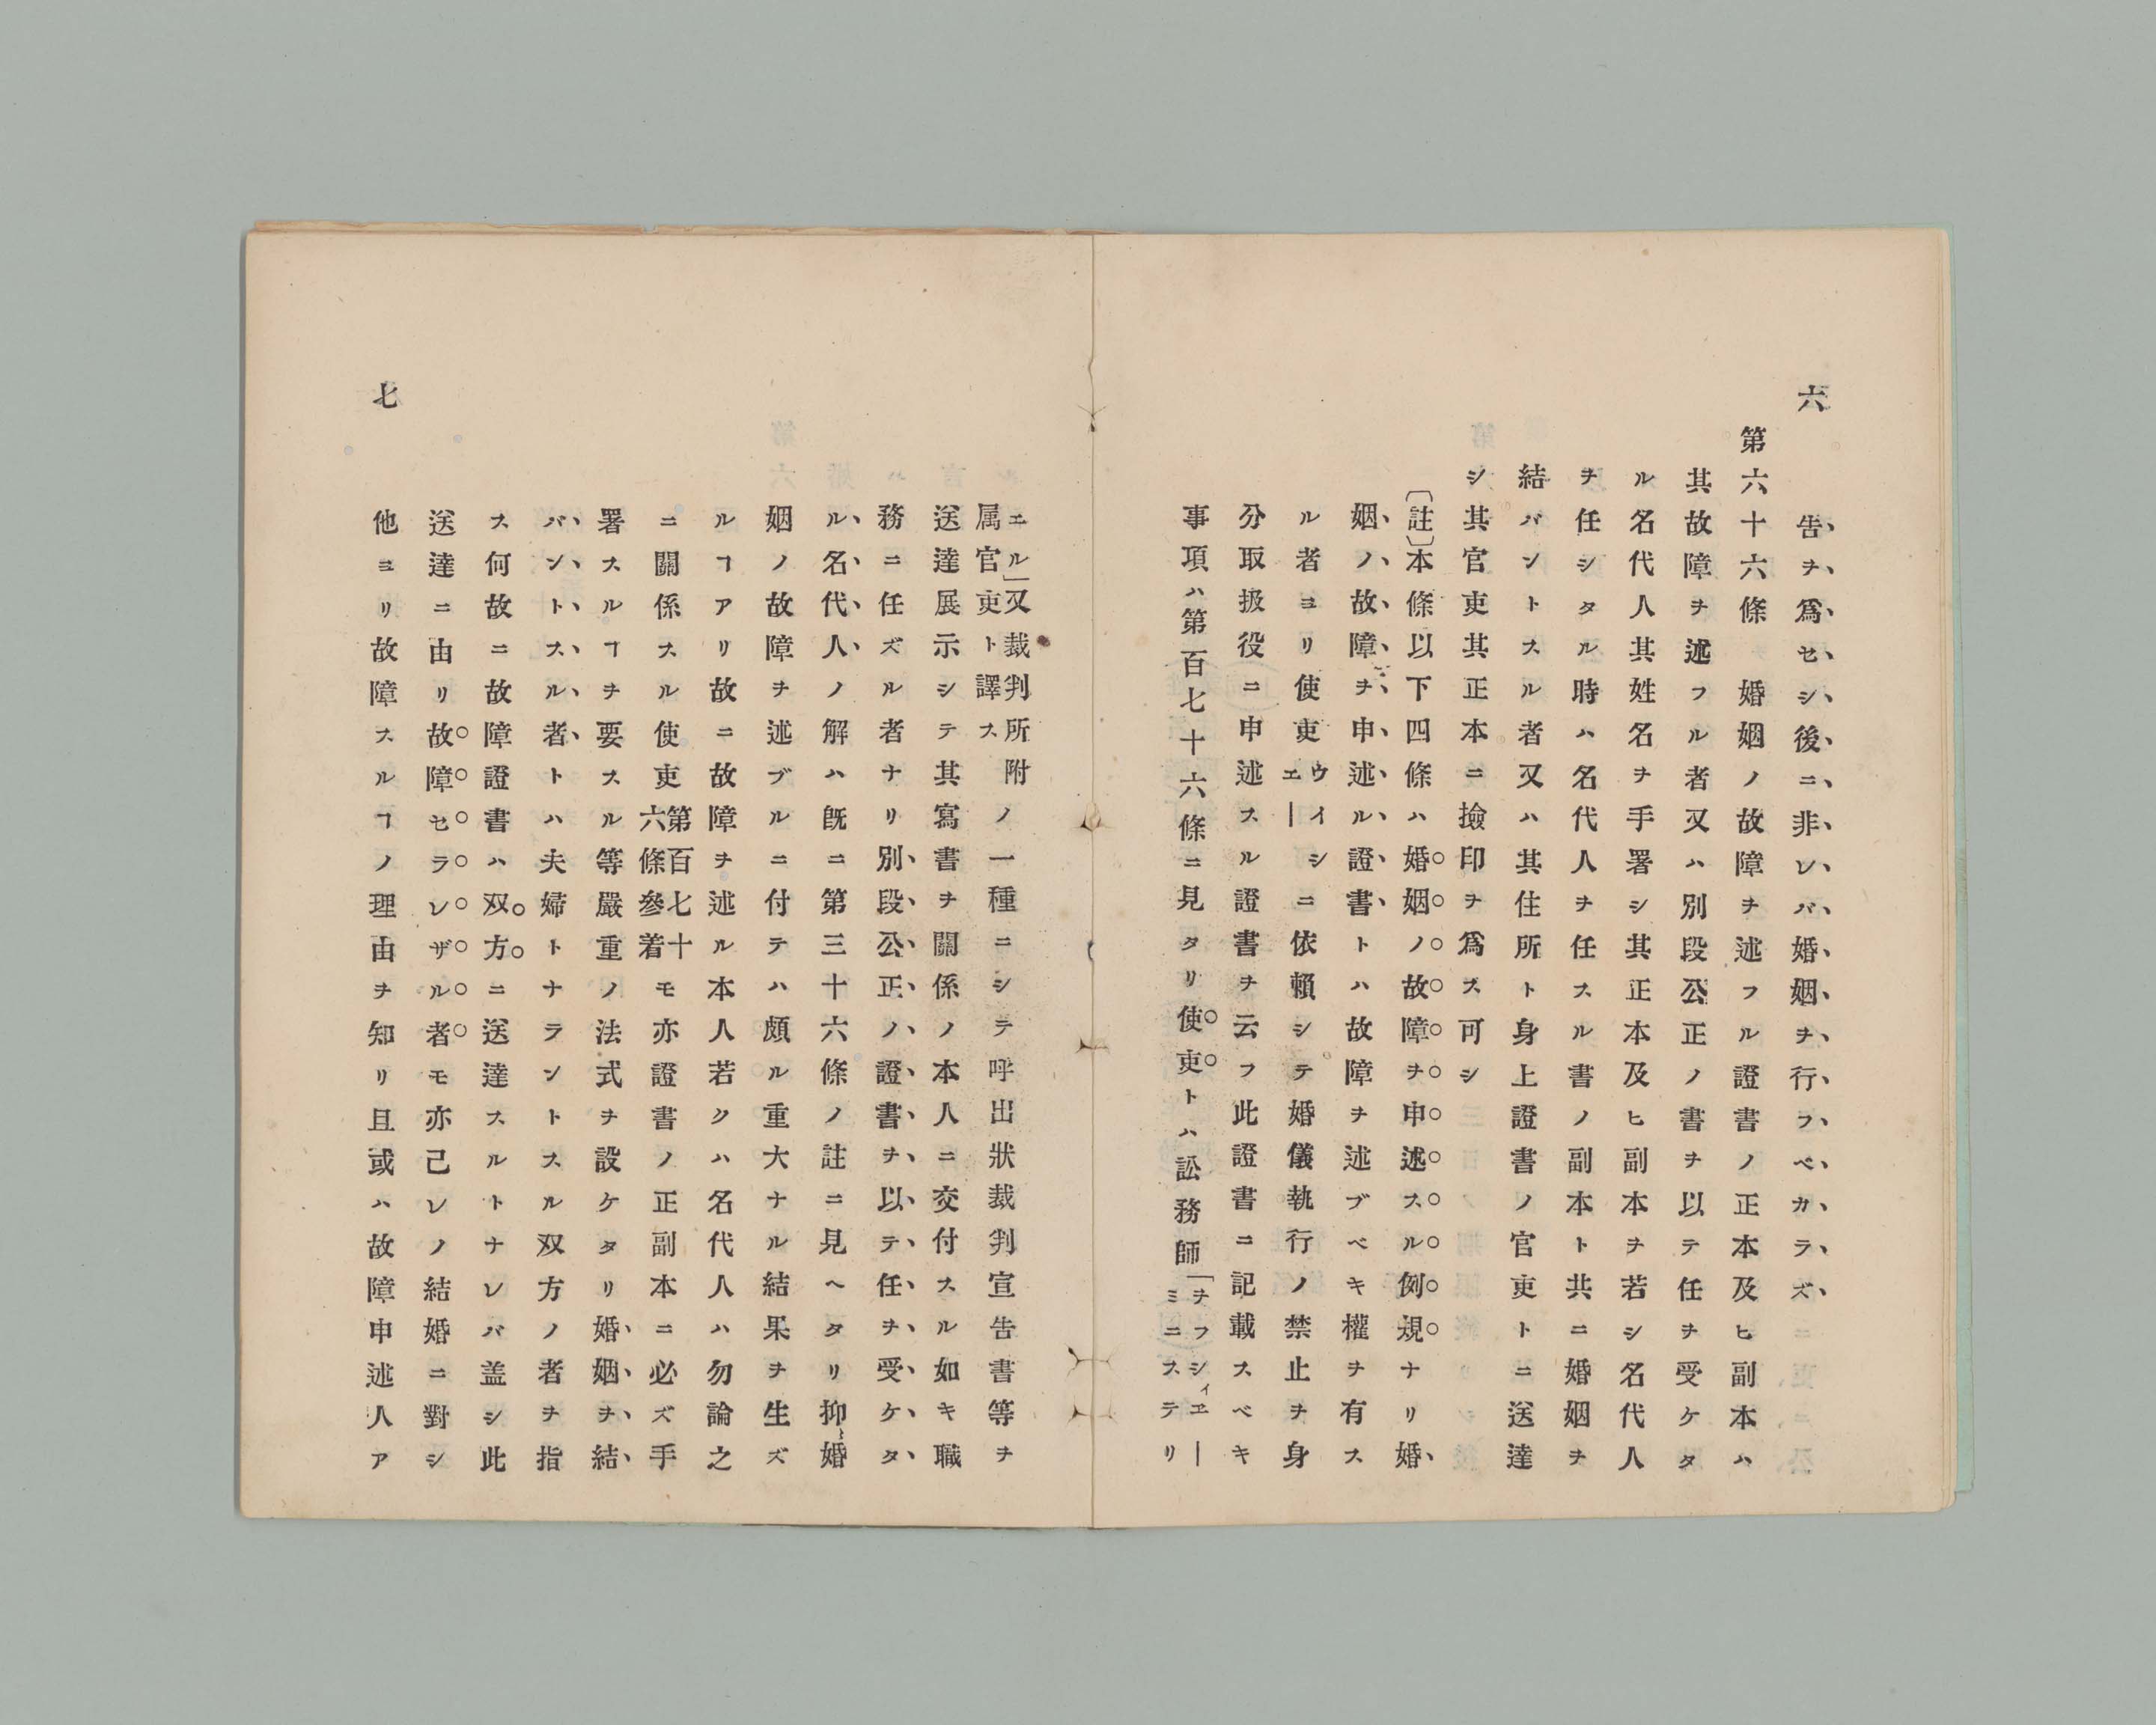 六
告ヲ爲セシ後ニ非レバ婚姻ヲ行フベカラズ
第六十六條　婚姻ノ故障ヲ述フル證書ノ正本及ヒ副本ハ
其故障ヲ述フル者又ハ別段公正ノ書ヲ以テ任ヲ受ケタ
ル名代人其姓名ヲ手署シ其正本及ヒ副本ヲ若シ名代人
ヲ任シタル時ハ名代人ヲ任スル書ノ副本ト共ニ婚姻ヲ
結バントスル者又ハ其住所ト身上證書ノ官吏トニ送達
シ其官吏其正本ニ撿印ヲ爲ス可シ
〔註〕本條以下四條ハ婚姻ノ故障ヲ申述スル例規ナリ婚
姻ノ故障ヲ申述ル證書トハ故障ヲ述ブベキ權ヲ有ス
ル者ヨリ使吏ウイシエーニ依賴シテ婚儀執行ノ禁止ヲ身
分取扱役ニ申述スル證書ヲ云フ此證書ニ記載スベキ
事項ハ第百七十六條ニ見タリ使吏トハ訟務師「ヲフシィエーミニステリ
エル」又裁判所附ノ一種ニシテ呼出狀裁判宣告書等ヲ
属官吏ト譯ス
送達展示シテ其寫書ヲ關係ノ本人ニ交付スル如キ職
務ニ任ズル者ナリ別段公正ノ證書ヲ以テ任ヲ受ケタ
ル名代人ノ解ハ既ニ第三十六條ノ註ニ見ヘタリ抑婚
姻ノ故障ヲ述ブルニ付テハ頗ル重大ナル結果ヲ生ズ
ルヿアリ故ニ故障ヲ述ル本人若クハ名代人ハ勿論之
ニ關係スル使吏第百七十六條參着モ亦證書ノ正副本ニ必ズ手
署スルヿヲ要スル等嚴重ノ法式ヲ設ケタリ婚姻ヲ結
バントスル者トハ夫婦トナラントスル双方ノ者ヲ指
ス何故ニ故障證書ハ双方ニ送達スルトナレバ盖シ此
送達ニ由リ故障セラレザル者モ亦己レノ結婚ニ對シ
他ヨリ故障スルヿノ理由ヲ知リ且或ハ故障申述人ア
七